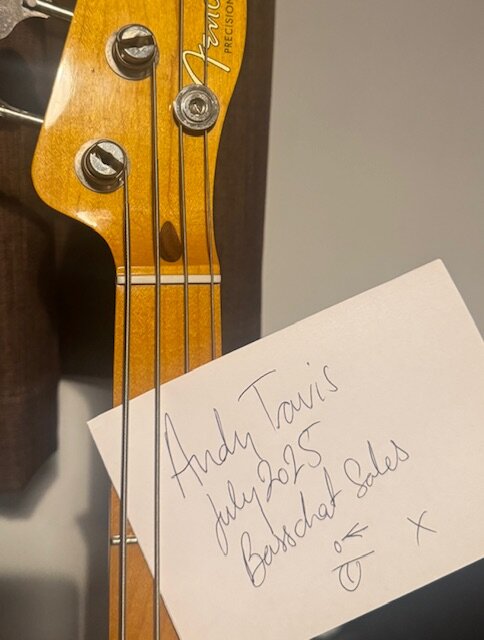 Fender
PRECISION
Andy Travis
July 2025
Basschat Sales
X